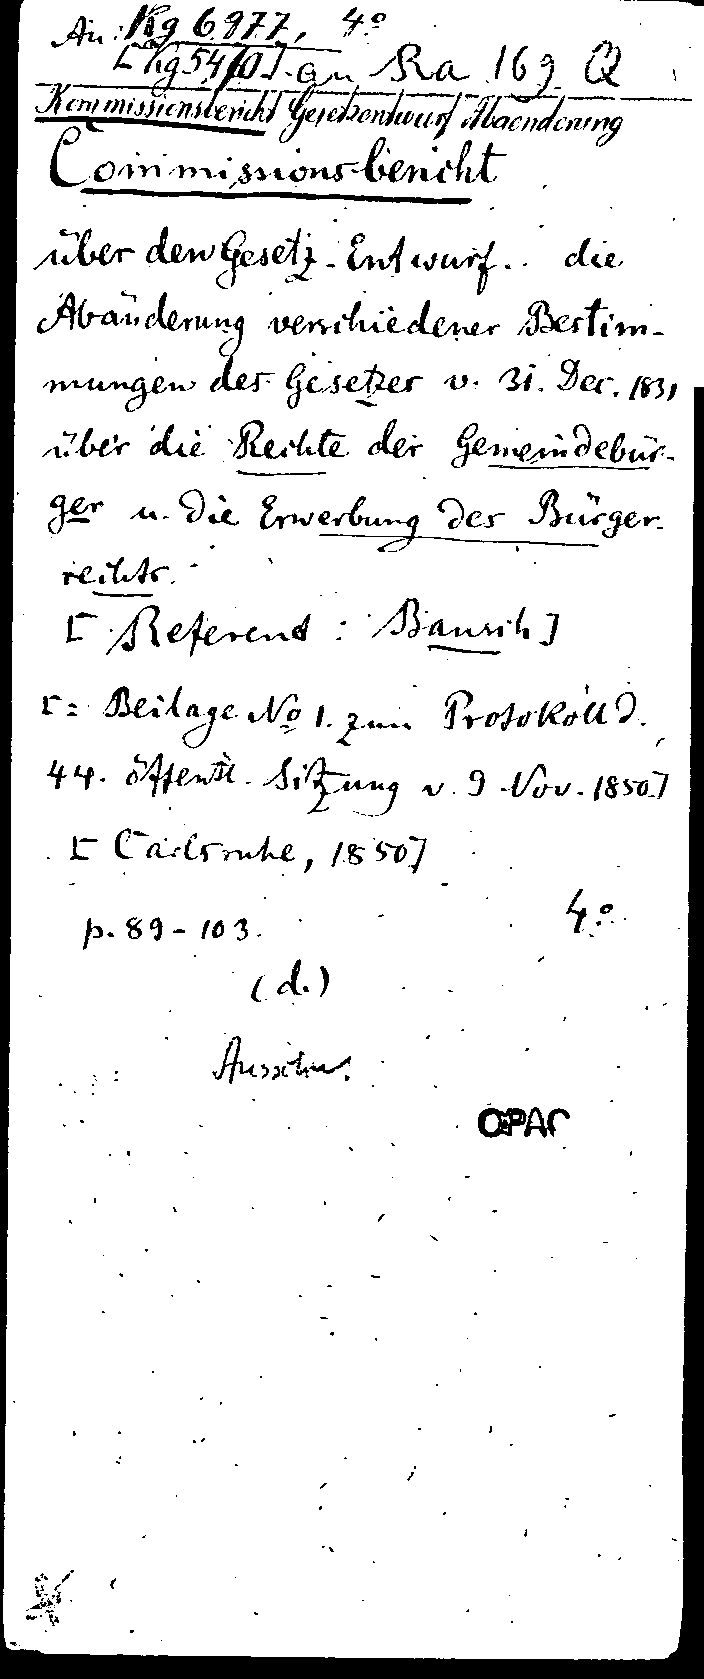 An: Kg 6977, 4°
[Kg 54/0] an Ra 169 Q
Kommissionsbericht Gesetzentwurf Abaenderung
Commissions-bericht
über den Gesetz-Entwurf.. die
Abänderung verschiedener Bestim-
mungen des Gesetzes v. 31. Dec. 1831
über die Rechte der Gemeindebür-
ger u. die Erwerbung des Bürger-
rechts.
[Referend: Bausch]
[= Beilage No 1. zum Protokoll d.
44. öffentl. Sitzung v. 9 Nov. 1850]
[Carlsruhe, 1850]
p. 89-103. 4°
(d.)
OPAC